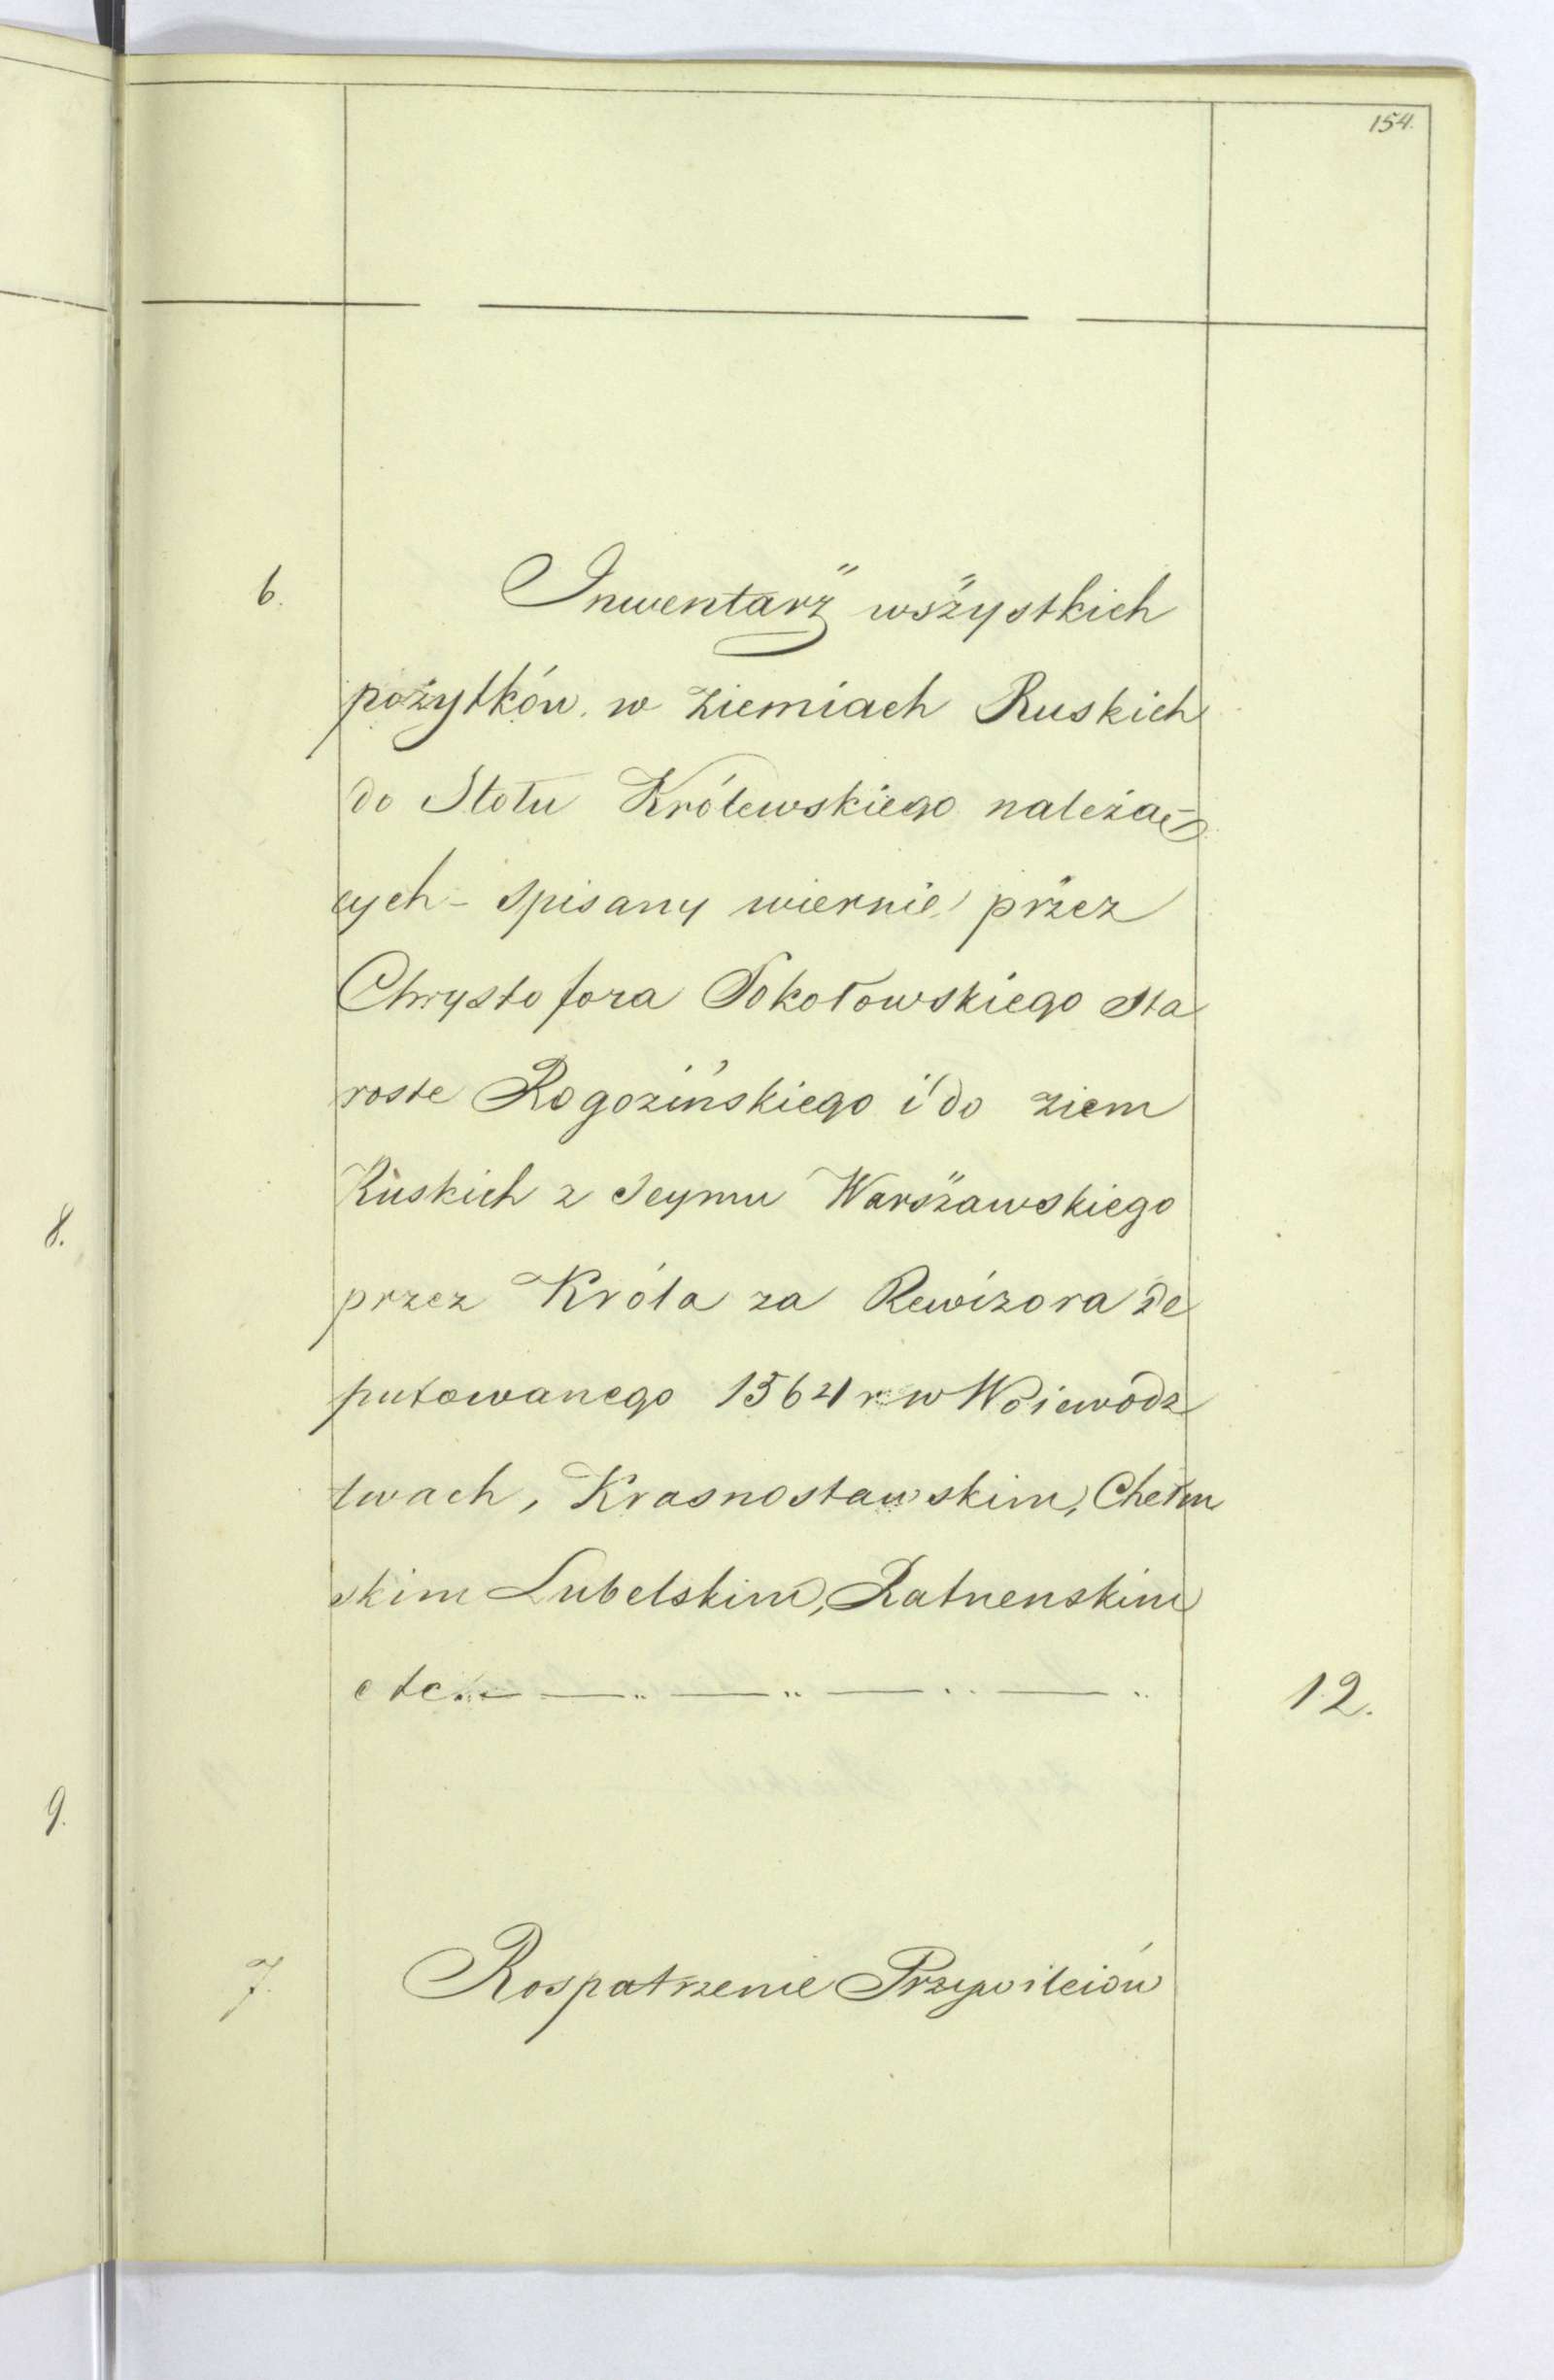 154.
6. Inwentarz wszystkich
pożytków w ziemiach Ruskich
do Stołu Królewskiego należą-
cych - spisany wiernie przez
Chrystofora Sokołowskiego Sta
roste Rogozińskiego i do ziem
Ruskich z Seymu Warszawskiego
przez Króla za Rewizora de
putowanego 1564 r w Woiewódz
twach, Krasnostawskim, Chełm
skim Lubelskim, Ratnenskim
etc. 12.
7. Rospatrzenie Przywileiów
8.
9.